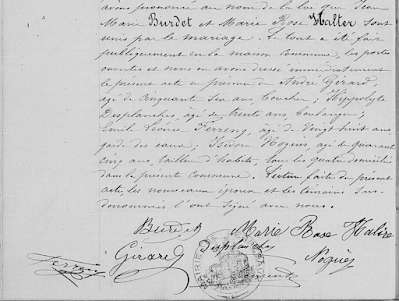 avons prononcé au nom de la loi que Jean
Marie Burdet et Marie Rose Halter sont
unis par le mariage. Le tout a été fait
publiquement en la maison commune, les portes
ouvertes et nous en avons dressé immédiatement
le présent acte en présence de André Girard
âgé de cinquante ans Cocher; Hippolyte
Desplanches, âgé de trente ans, boulanger;
Emile Ferreng, âgé de vingt huit ans
garde des eaux; Isidore Noques, âgé de quarante
cinq ans, tailleur d'habits, tous les quatre domiciliés
dans la présente Commune. Lecture faite du présent
acte, les nouveaux époux et les témoins sus-
dénommés l'ont signé avec nous.
Burdet Marie Rose Haltre
Girard Desplanches
Noques